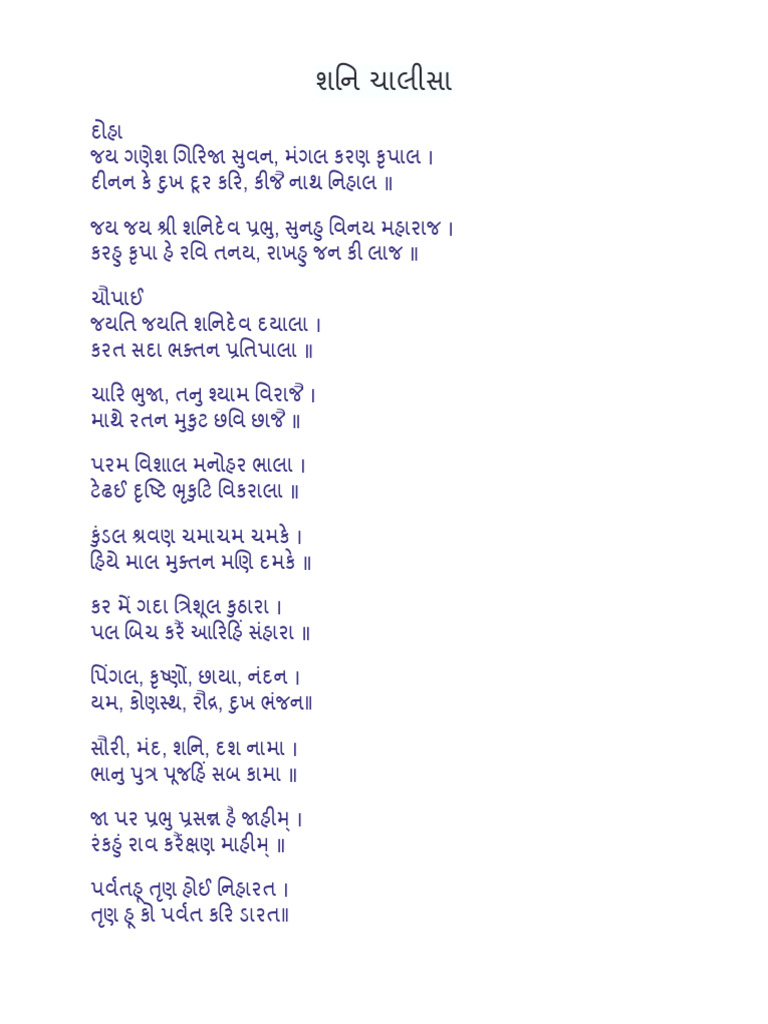 શનિ ચાલીસા
દોહા
જય ગણેશ ગિરિજા સુવન, મંગલ કરણ કૃપાલ ।
દીનન કે દુખ દૂર કરિ, કીજૈ નાથ નિહાલ ॥
જય જય શ્રી શનિદેવ પ્રભુ, સુનહુ વિનય મહારાજ ।
કરહુ કૃપા હે રવિ તનય, રાખહુ જન કી લાજ ॥
ચૌપાઈ
જયતિ જયતિ શનિદેવ દયાલા ।
કરત સદા ભક્તન પ્રતિપાલા ॥
ચારિ ભુજા, તનુ શ્યામ વિરાજૈ ।
માથે રતન મુકુટ છવિ છાજૈ ॥
પરમ વિશાલ મનોહર ભાલા ।
ટેઢઈ દૃષ્ટિ ભૃકુટિ વિકરાલા ॥
કુંડલ શ્રવણ ચમાચમ ચમકે ।
હિયે માલ મુક્તન મણિ દમકે ॥
કર મેં ગદા ત્રિશૂલ કુઠારા ।
પલ બિચ કરૈં આરિહિં સંહારા ॥
પિંગલ, કૃષ્ણોં, છાયા, નંદન ।
યમ, કોણસ્થ, રૌદ્ર, દુખ ભંજન॥
સૌરી, મંદ, શનિ, દશ નામા ।
ભાનુ પુત્ર પૂજહિં સબ કામા ॥
જા પર પ્રભુ પ્રસન્ન હૈ જાહીમ્ ।
રંકહું રાવ કરૈંક્ષણ માહીમ્ ॥
પર્વતહૂ તૃણ હોઈ નિહારત ।
તૃણ હૂ કો પર્વત કરિ ડારત॥